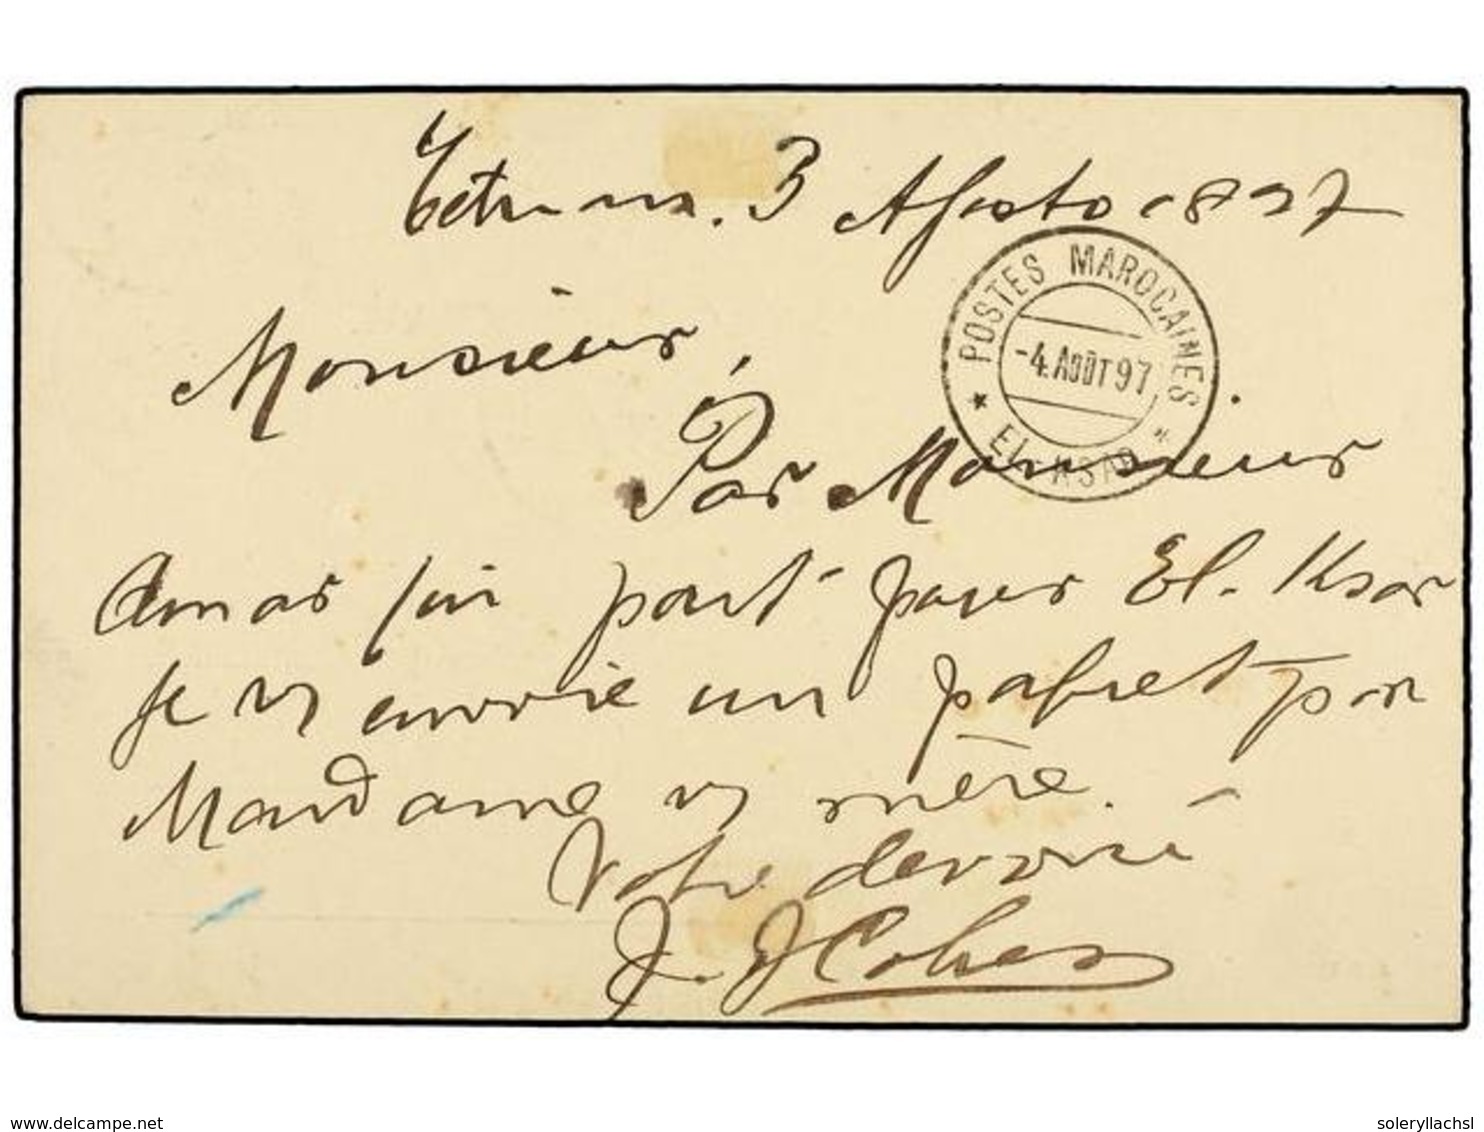 Tetuan. 3 Agosto 1897
POSTES MAROCAINES
-4. AOÛT 97
* EL-KSAR *
Monsieur,
Par Monsieur
Amar qui part pour El. Ksar
Je v/ envoie un paquet par
Madame v/ mère.
Votre devoué
J. Cohen
delcampe.net
soleryllachsl